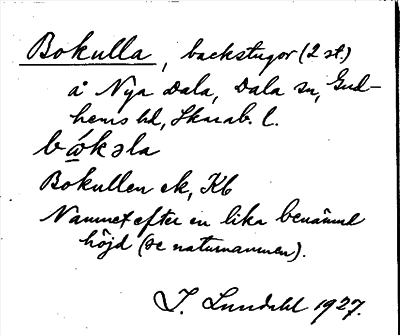 Bokulla, backstugor (2 st.)
å Nya Dala, Dala sn, Gud-
hems hd, Skarab. l.
bω̄́kəla
Bokullen ek, Kb
Namnet efter en lika benämnd
höjd (se naturnamnen).
J. Lundahl 1927.